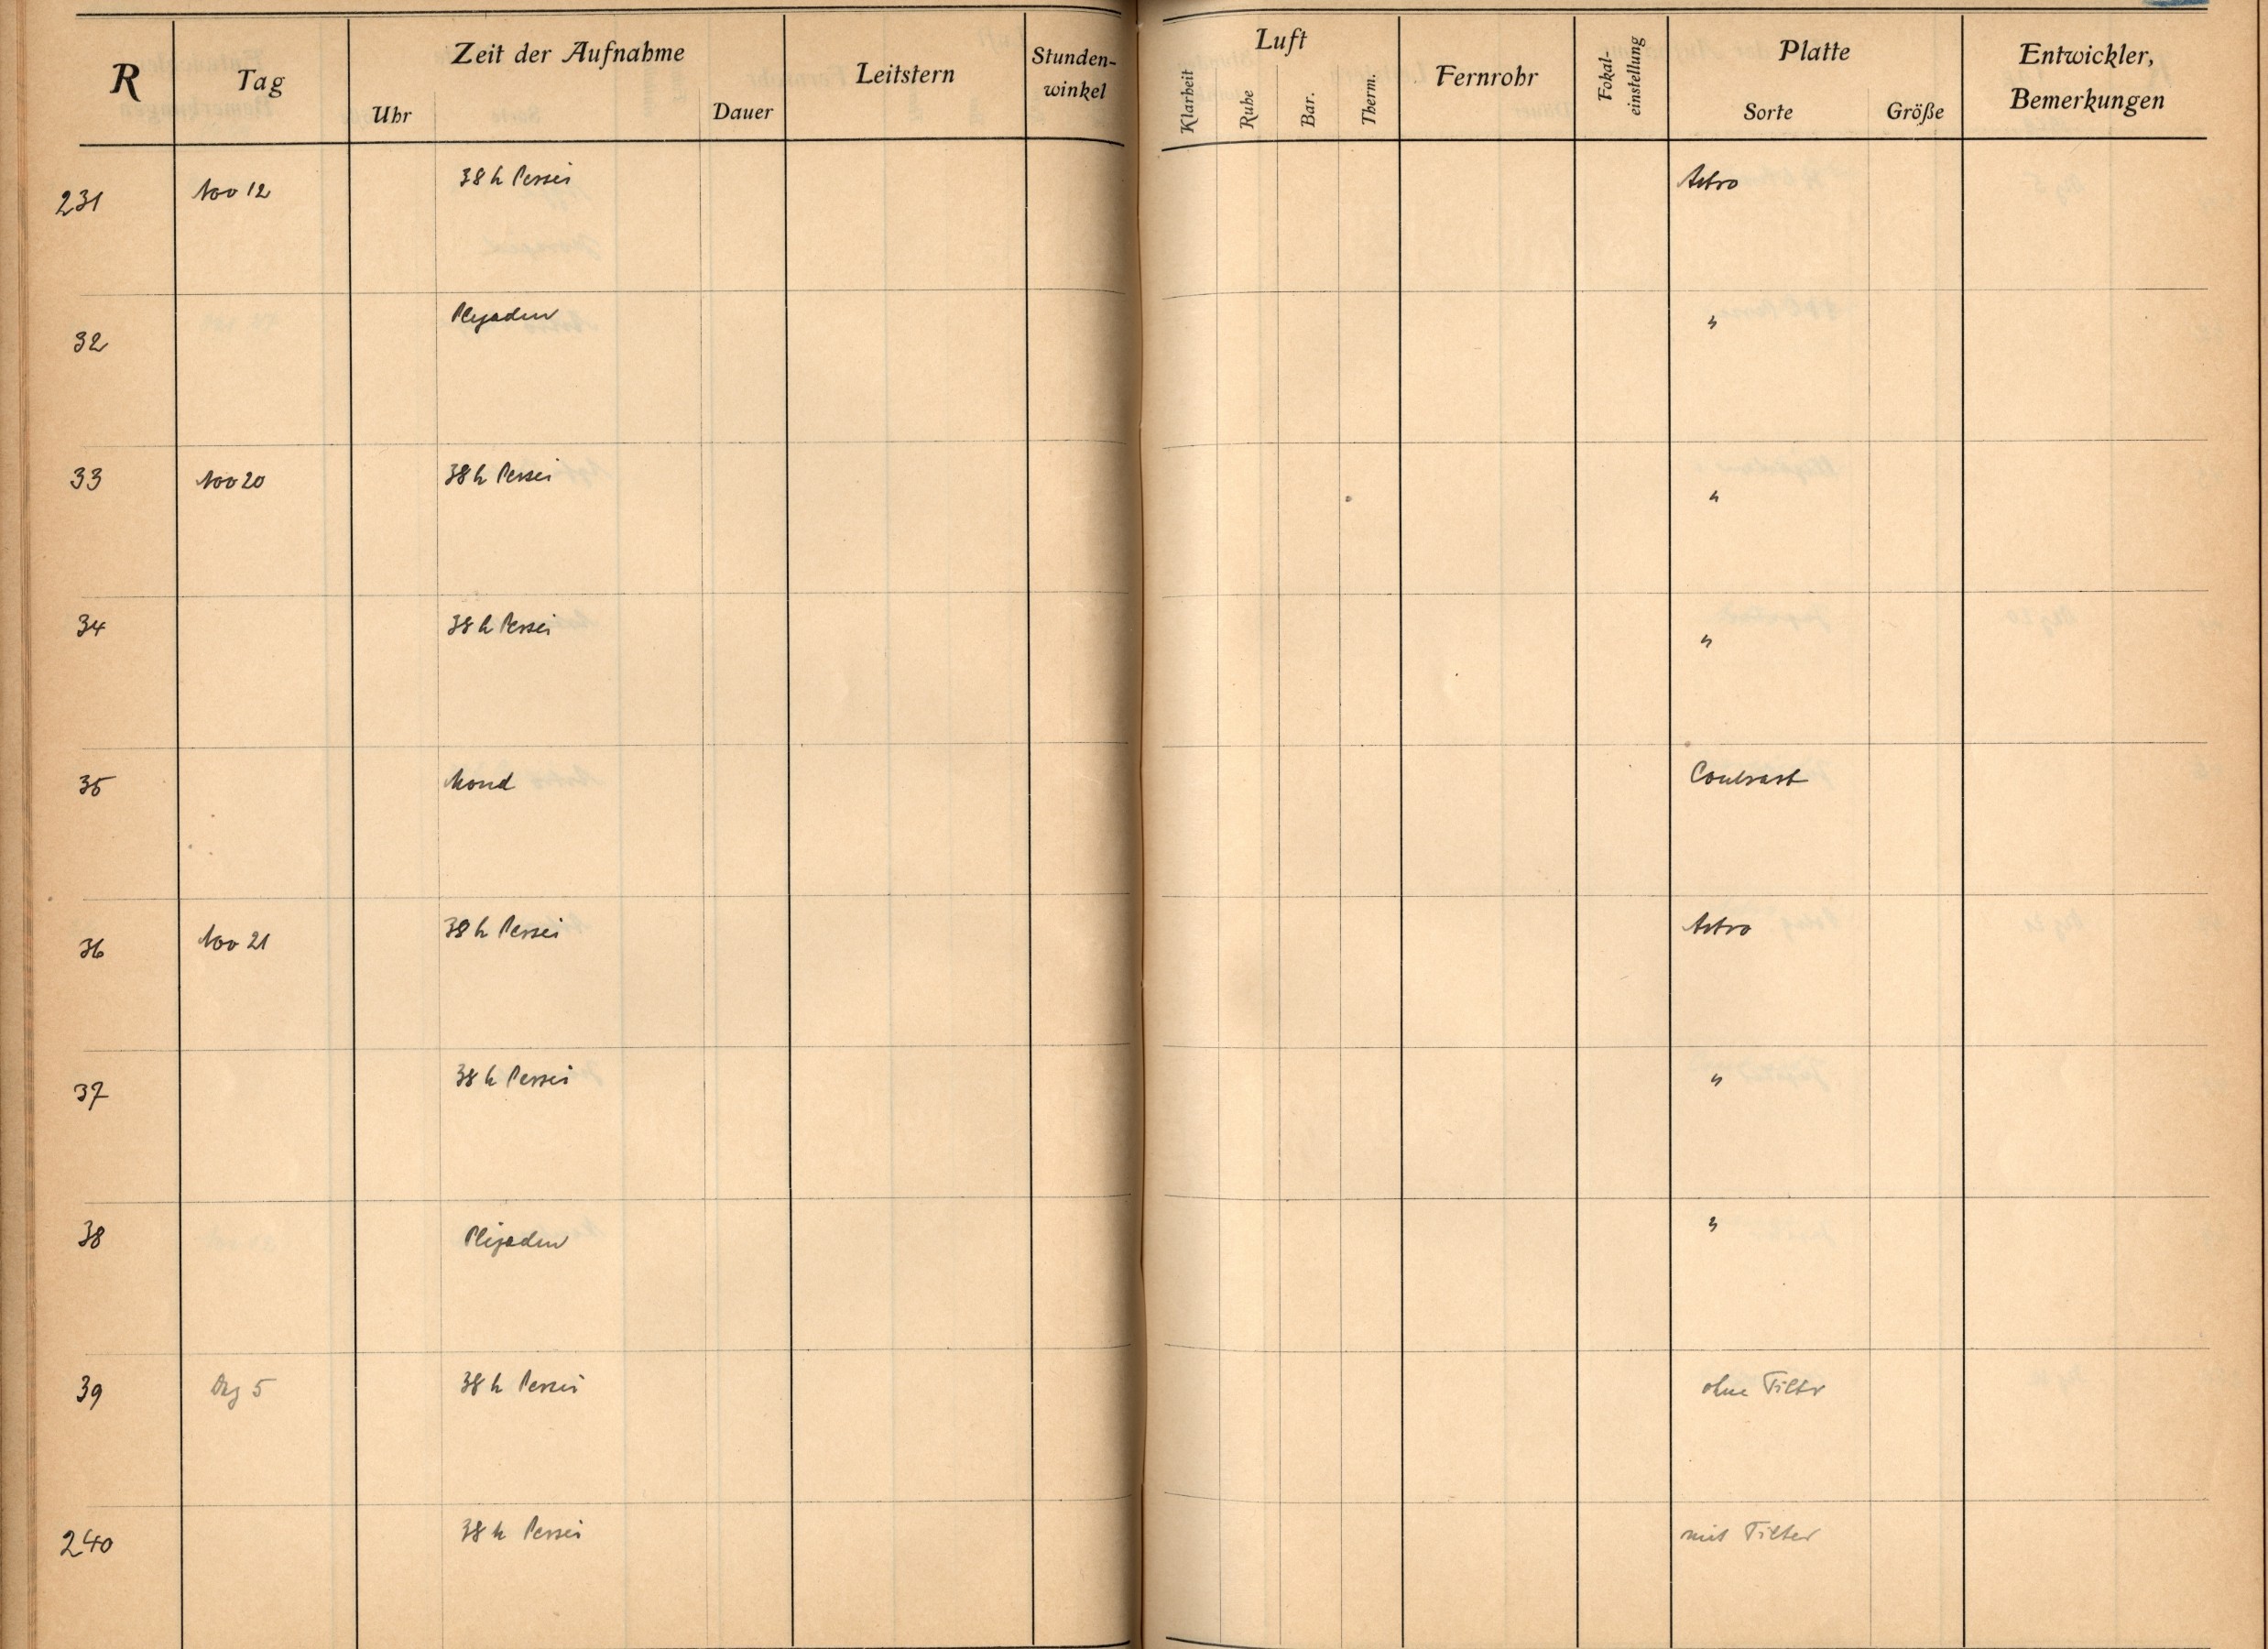 R Tag Zeit der Aufnahme Leitstern Stunden-winkel Luft Fernrohr Fokal-einstellung Platte Entwickler, Bemerkungen
Uhr Dauer Klarheit Ruhe Bar. Therm. Sorte Größe
231 Nov 12 38 h Persei Astro
32 Plejaden "
33 Nov 20 38 h Persei "
34 38 h Persei "
35 Mond Contrast
36 Nov 21 38 h Persei Astro
37 38 h Persei "
38 Plejaden "
39 Dez 5 38 h Persei ohne Filter
240 38 h Persei mit Filter